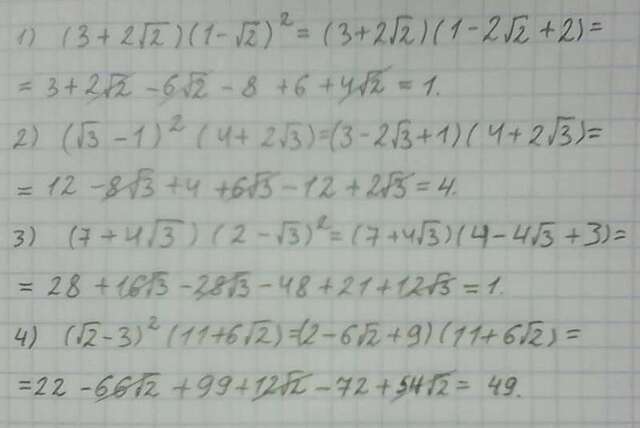 1) (3+2√2)(1-√2)² = (3+2√2)(1-2√2+2)=
= 3+2√2 -6√2 -8 +6 +4√2 = 1.
2) (√3 -1)² (4+2√3)=(3-2√3+1)(4+2√3)=
= 12 -8√3 +4 +6√3 -12 +2√3 = 4.
3) (7+4√3) (2-√3)² = (7+4√3)(4-4√3+3)=
= 28 +16√3 -28√3 -48 +21 +12√3 = 1.
4) (√2-3)² (11+6√2)=(2-6√2+9)(11+6√2)=
=22 -66√2 +99+12√2 -72+54√2 = 49.